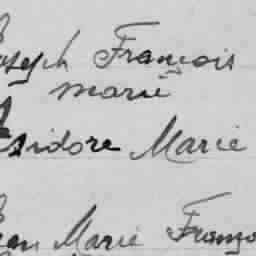 Joseph François
Marie
Isidore Marie
Jean Marie Franço